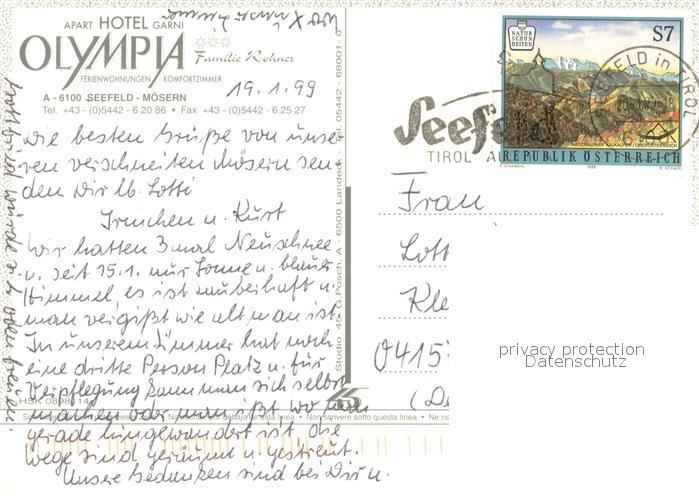 APART HOTEL GARNI
OLYMPIA
Familie Rohner
FERIENWOHNUNGEN KOMFORTZIMMER
A - 6100 SEEFELD - MÖSERN
Tel. +43 - (0)5442 - 6 20 86 • Fax +43 - (0)5442 - 6 25 27
19.1.99
Die besten Grüße von unse-
ren verschneiten Mösern sen-
den Dir lb. Lotti
Irmchen u. Kurt
Wir hatten 3 mal Neuschnee
u. seit 15.1. nur Sonne u. blauer
Himmel, es ist zauberhaft u.
man vergißt wie alt man ist.
In unserem Zimmer hat noch
eine dritte Person Platz u. für
Verpflegung kann man sich selbst
machen oder man ißt wo man
gerade hingewandert ist, die
Wege sind geräumt u. gestreut.
Unsere Gedanken sind bei Dir u.
HSK 0898
Studio 45 - G. Posch, A - 6500 Landeck - Tel. 05442 - 68001-0
Non scrivere sotto questa linea
S7
NATUR SCHÖN HEITEN
NATIONALPARK KALKALPEN / OBERÖSTERREICH
REPUBLIK ÖSTERREICH
1998
Seefeld
TIROL AU
SEEFELD in TIROL
Frau
Lott
Kle
0415
(D
privacy protection
Datenschutz